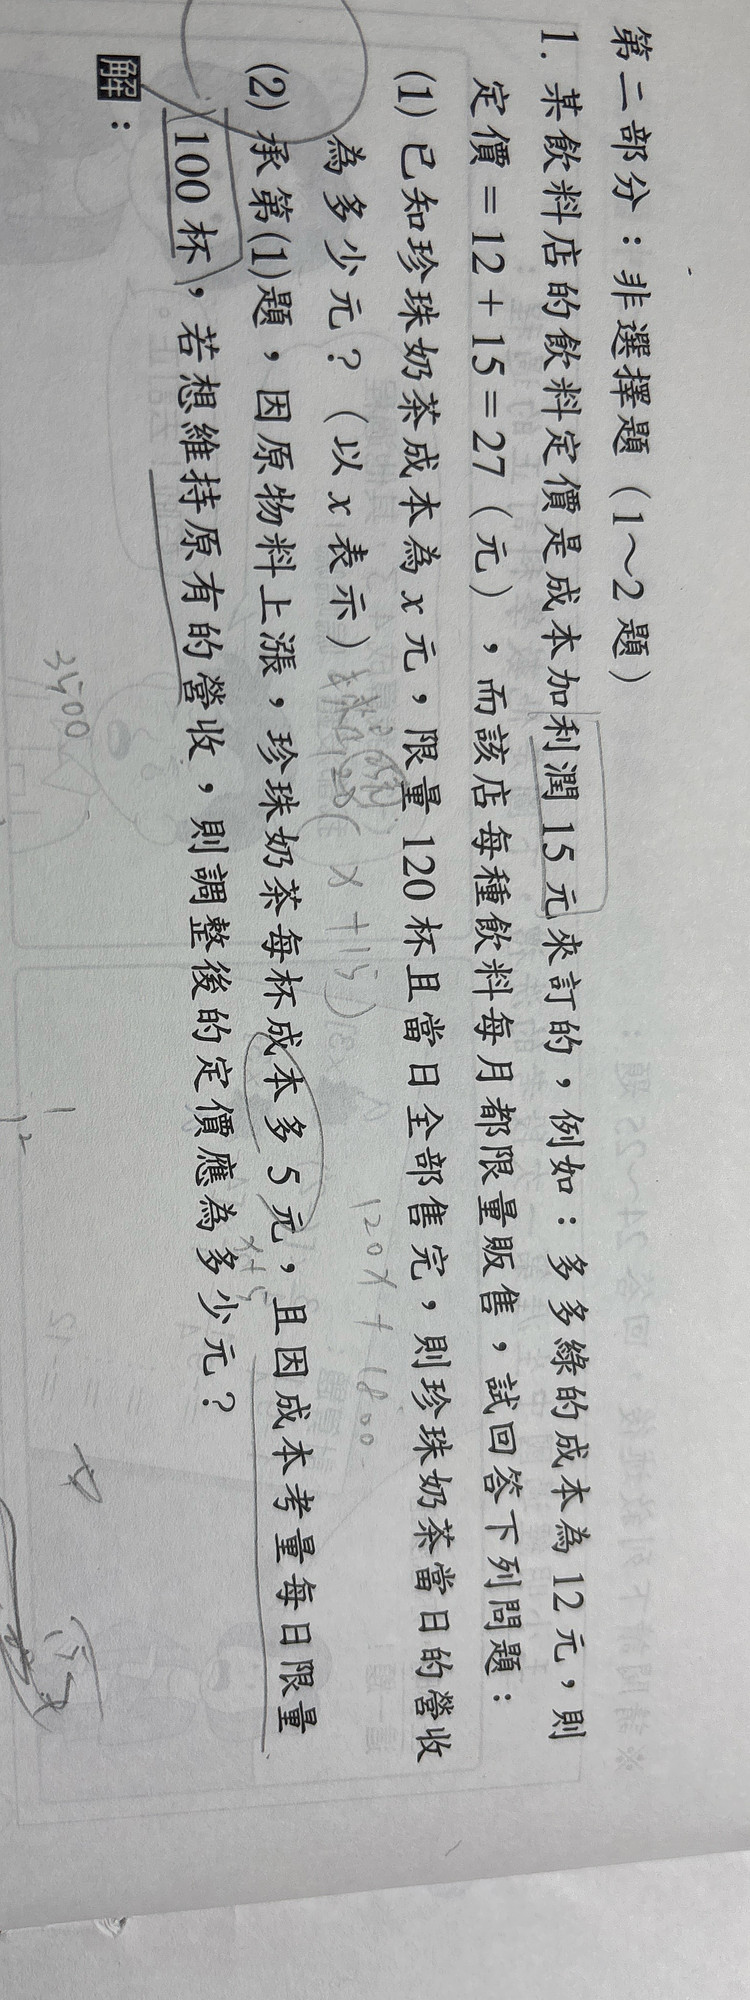 第二部分：非選擇題（1～2 題）
1. 某飲料店的飲料定價是成本加利潤 15 元來訂的，例如：多多綠的成本為 12 元，則
定價＝12＋15＝27（元），而該店每種飲料每月都限量販售，試回答下列問題：
(1) 已知珍珠奶茶成本為 x 元，限量 120 杯且當日全部售完，則珍珠奶茶當日的營收
為多少元？（以 x 表示）
120( x +15)
120x + 1800
(2) 承第(1)題，因原物料上漲，珍珠奶茶每杯成本多 5 元，且因成本考量每日限量
x+5
100 杯，若想維持原有的營收，則調整後的定價應為多少元？
解：